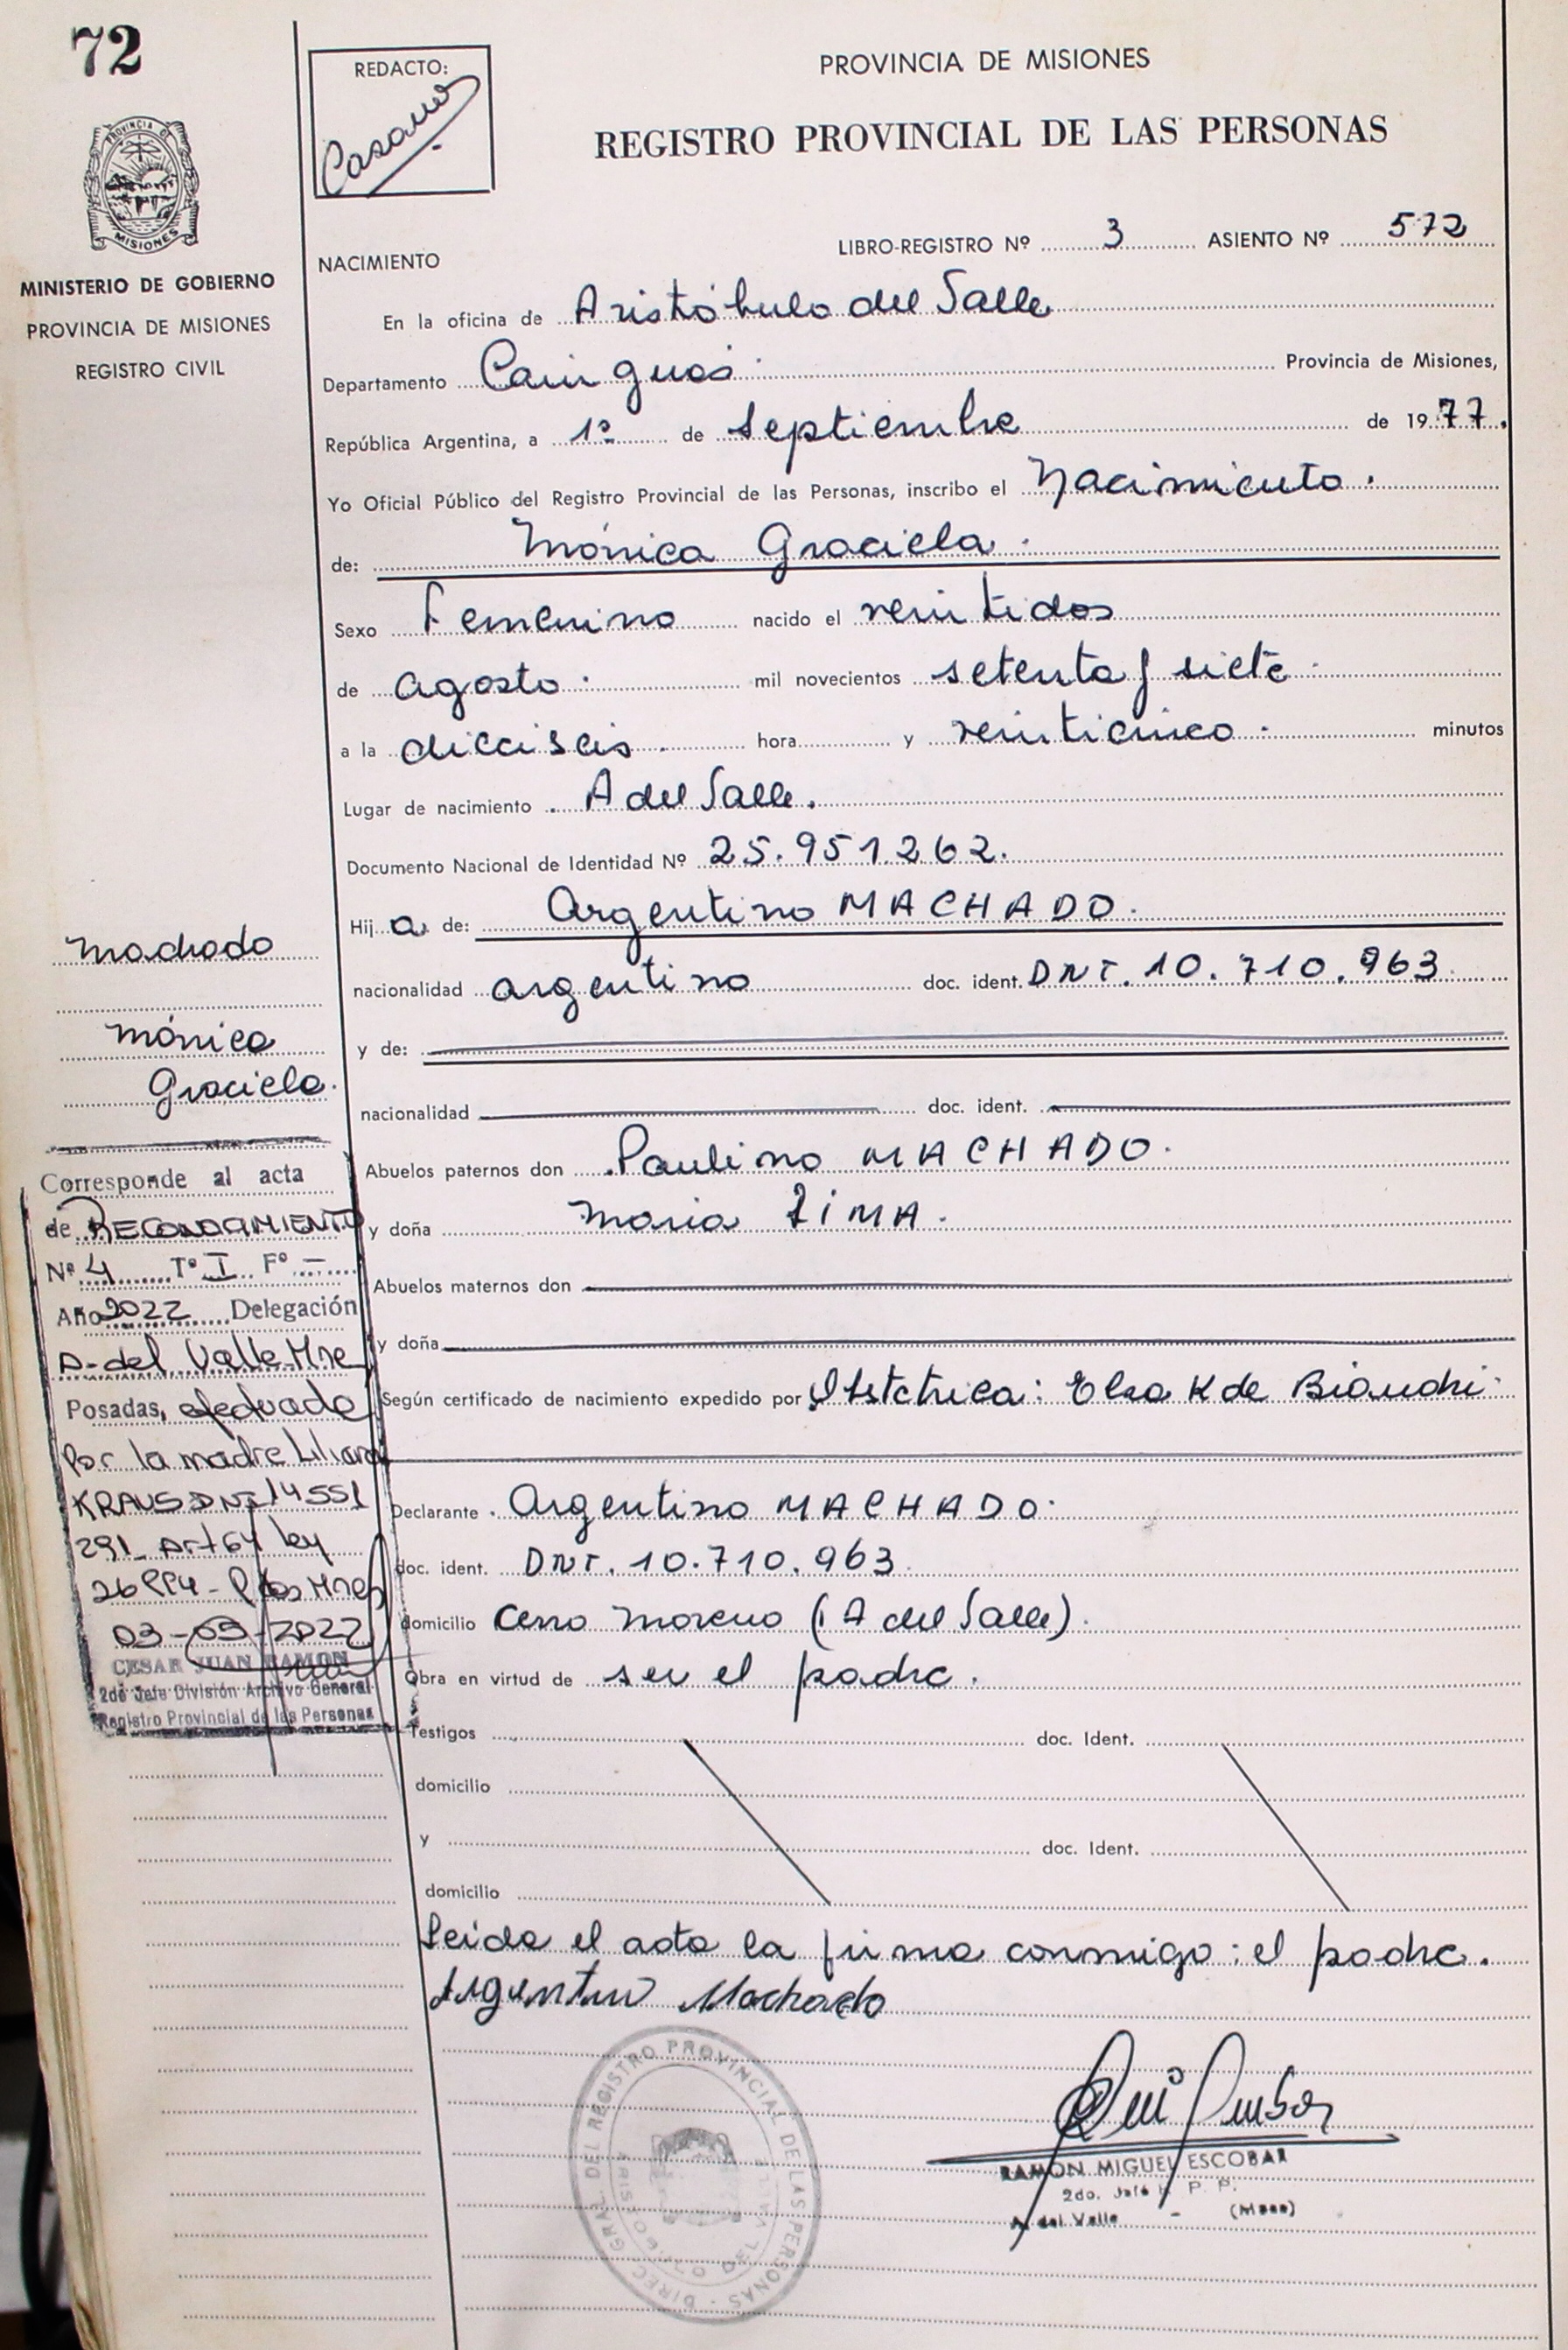 72
REDACTO:
Casano
PROVINCIA DE MISIONES
REGISTRO PROVINCIAL DE LAS PERSONAS
PROVINCIA DE
MISIONES
MINISTERIO DE GOBIERNO
PROVINCIA DE MISIONES
REGISTRO CIVIL
NACIMIENTO
LIBRO-REGISTRO Nº 3 ASIENTO Nº 572
En la oficina de Aristóbulo del Valle
Departamento Cainguás. Provincia de Misiones,
República Argentina, a 1º de septiembre de 1977.
Yo Oficial Público del Registro Provincial de las Personas, inscribo el Nacimiento.
de: Mónica Graciela.
Sexo Femenino nacido el veintidos
de agosto. mil novecientos setenta y siete.
a la dieciseis. hora y veinticinco. minutos
Lugar de nacimiento. A del Valle.
Documento Nacional de Identidad Nº 25.951.262.
Hij a de: Argentino MACHADO.
nacionalidad argentino doc. ident. DNI. 10.710.963
y de:
nacionalidad doc. ident.
Abuelos paternos don Paulino MACHADO.
y doña Maria LIMA.
Abuelos maternos don
y doña
Según certificado de nacimiento expedido por Obstetrica: Elsa K de Bianchi.
Declarante. Argentino MACHADO.
doc. ident. DNI. 10.710.963.
domicilio Cerro Moreno (A del Valle).
Obra en virtud de ser el padre.
Testigos doc. Ident.
domicilio
y doc. Ident.
domicilio
Leida el acta la firma conmigo: el padre.
Argentino Machado
Machado
Mónica
Graciela.
Corresponde al acta
de RECONOCIMIENTO
Nº 4 Tº I Fº -
Año 2022 Delegación
A. del Valle Mnes
Posadas, efectuado
Por la madre Liliana
KRAUS DNI 14551
291- Art 64 ley
26994- Pdas Mnes
03-03-2022
CESAR JUAN RAMON
2do Jefe División Archivo General
Registro Provincial de las Personas
DIREC. GRAL. DEL REGISTRO PROVINCIAL DE LAS PERSONAS
ARISTOBULO DEL VALLE
RAMON MIGUEL ESCOBAR
2do. Jefe R. P. P.
A. del Valle - (Mnes)